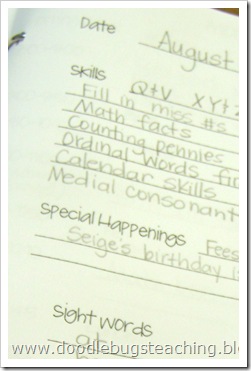 Date August
Skills Q+V XY+
Fill in miss #s
Math facts
Counting pennies
Ordinal Words fir
Calendar skills
Medial consonant
Special Happenings Fees
Seige's birthday i
Sight Words
at
www.doodlebugsteaching.bl